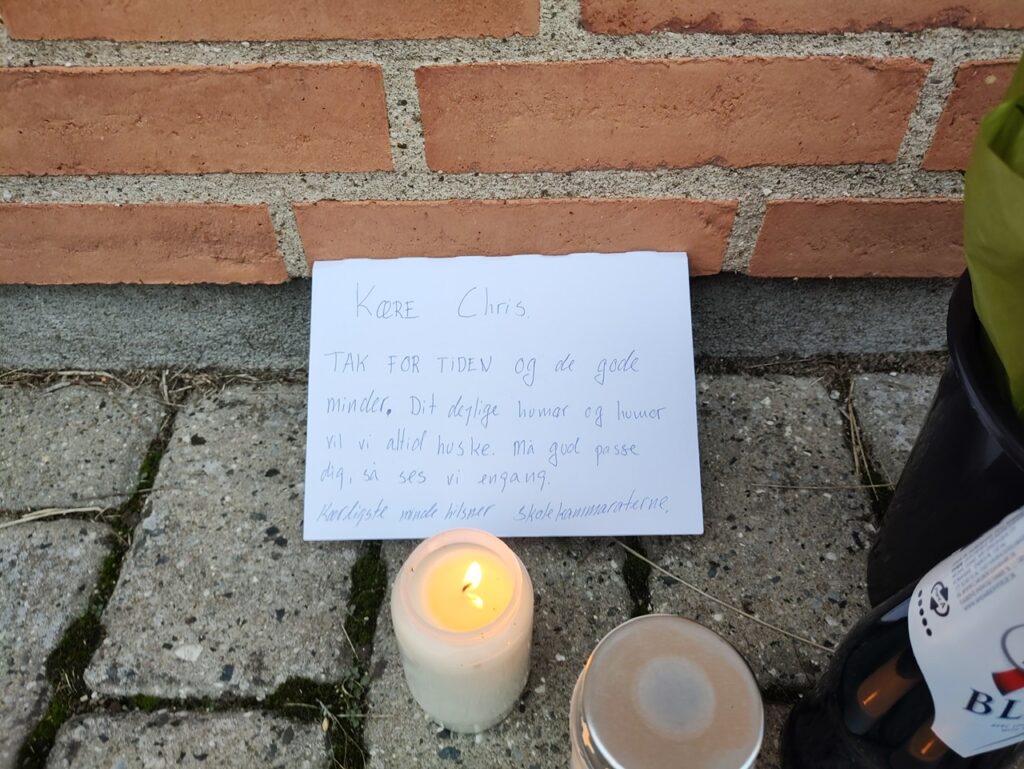 KÆRE Chris.
TAK FOR TIDEN og de gode
minder. Dit dejlige humør og humor
vil vi altid huske. Må gud passe
dig, så ses vi engang.
Kærligste minde hilsner skolekammaraterne.
BL